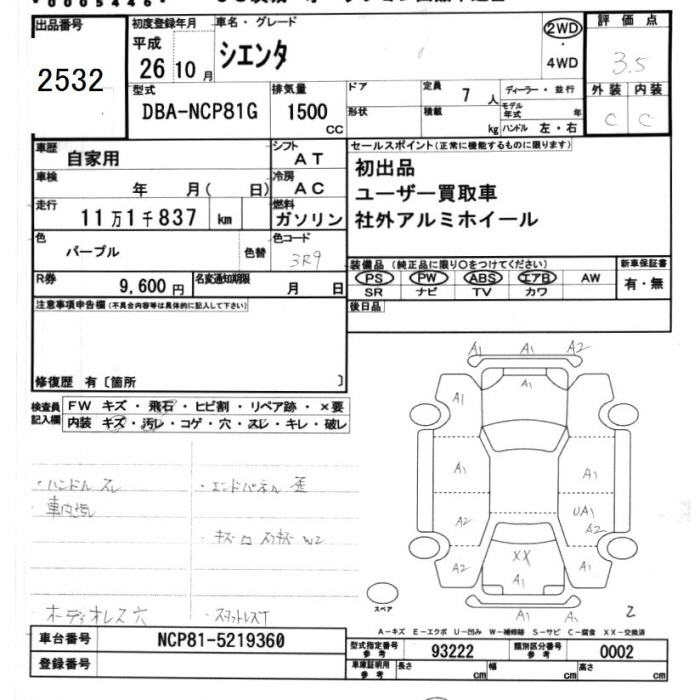 出品番号
2532
初度登録年月
平成
26 10 月
車名・グレード
シエンタ
2WD
・
4WD
評価点
3.5
外装 内装
C C
型式
DBA-NCP81G
排気量
1500
CC
ドア
形状
定員
7 人
積載
kg
ディーラー・並行
モデル年式 年
ハンドル 左・右
車歴
自家用
シフト
AT
車検
年 月( 日)
冷房
AC
走行
11万1千837 km
燃料
ガソリン
色
パープル
色替
色コード
3R9
R券
9,600 円
名変通知期限
月 日
セールスポイント(正常に機能するものに限ります)
初出品
ユーザー買取車
社外アルミホイール
装備品 (純正品に限り○をつけてください)
PS PW ABS エアB AW
SR ナビ TV カワ
新車保証書
有・無
後日品
注意事項申告欄(不具合内容等は具体的に記入して下さい)
修復歴 有〔箇所 〕
検査員記入欄
FW キズ・飛石・ヒビ割・リペア跡・×要
内装 キズ・汚レ・コゲ・穴・スレ・キレ・破レ
・ハンドル スレ
・エンドパネル 歪
オーディオレス 穴
・スタットレスT
A1 A1 A2
A1
A1 A1
UA1
A2 A2
XX
A2 A1 A1
スペア
2
A-キズ E-エクボ U-凹み W-補修跡 S-サビ C-腐食 XX-交換済
車台番号
NCP81-5219360
登録番号
型式指定番号
参考
93222
類別区分番号
参考
0002
車庫証明用
参考
長さ cm 幅 cm 高さ cm